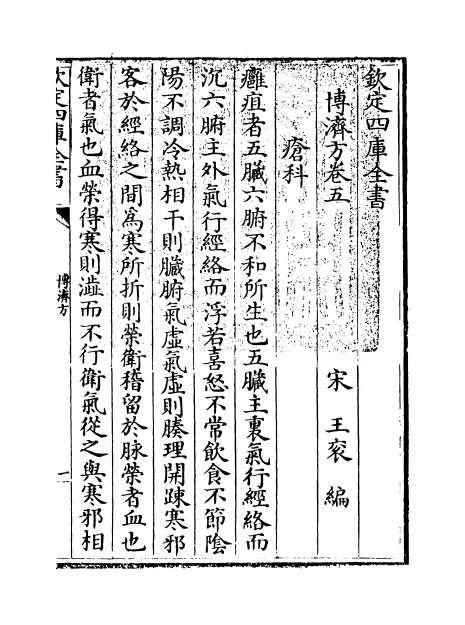 欽定四庫全書
博濟方卷五
宋 王袞 編
瘡科
癰疽者五臟六腑不和所生也五臟主裏氣行經絡而
沉六腑主外氣行經絡而浮若喜怒不常飲食不節陰
陽不調冷熱相干則臟腑氣虛氣虛則腠理開踈寒邪
客於經絡之間為寒所折則榮衛稽留於脉榮者血也
衛者氣也血榮得寒則澁而不行衛氣從之與寒邪相
欽定四庫全書
博濟方
一